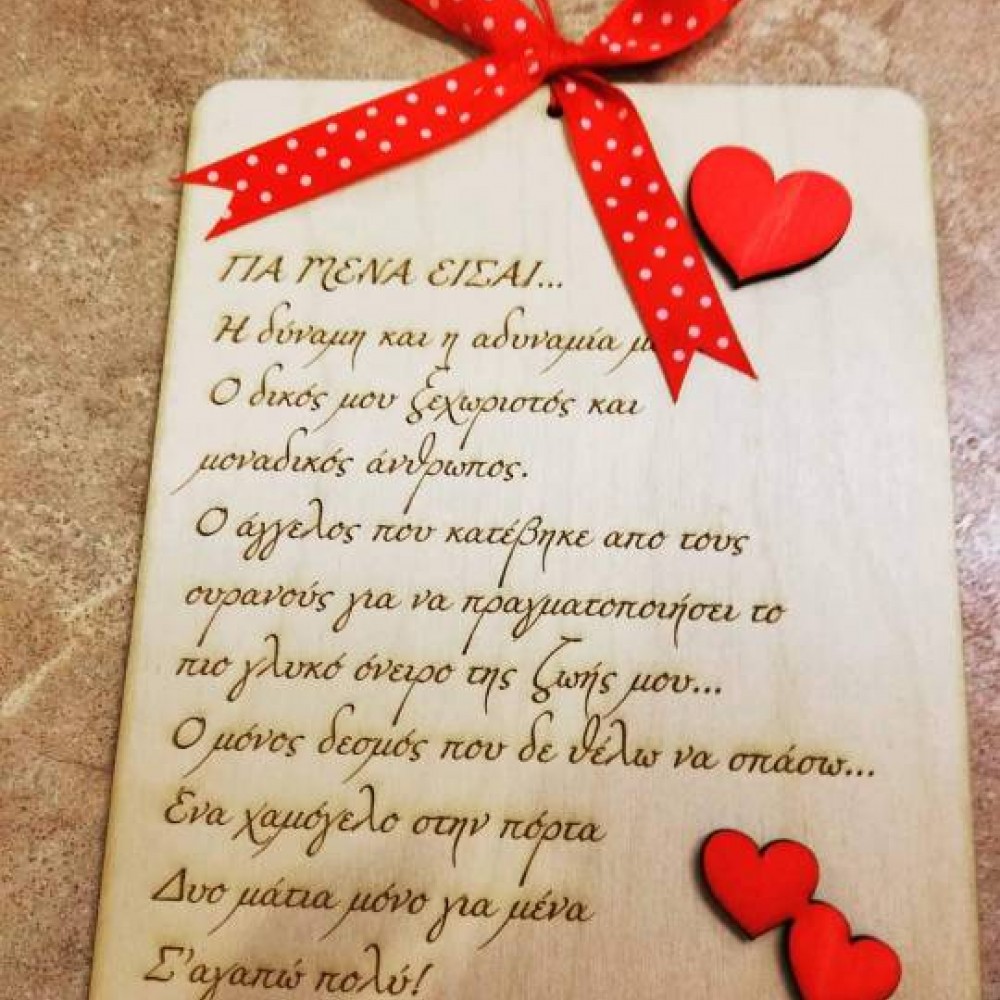 ΓΙΑ ΜΕΝΑ ΕΙΣΑΙ...
Η δύναμη και η αδυναμία
Ο δικός μου ξεχωριστός και
μοναδικός άνθρωπος.
Ο άγγελος που κατέβηκε απο τους
ουρανούς για να πραγματοποιήσει το
πιο γλυκό όνειρο της ζωής μου...
Ο μόνος δεσμός που δε θέλω να σπάσω...
Ενα χαμόγελο στην πόρτα
Δυο μάτια μόνο για μένα
Σ'αγαπώ πολύ!